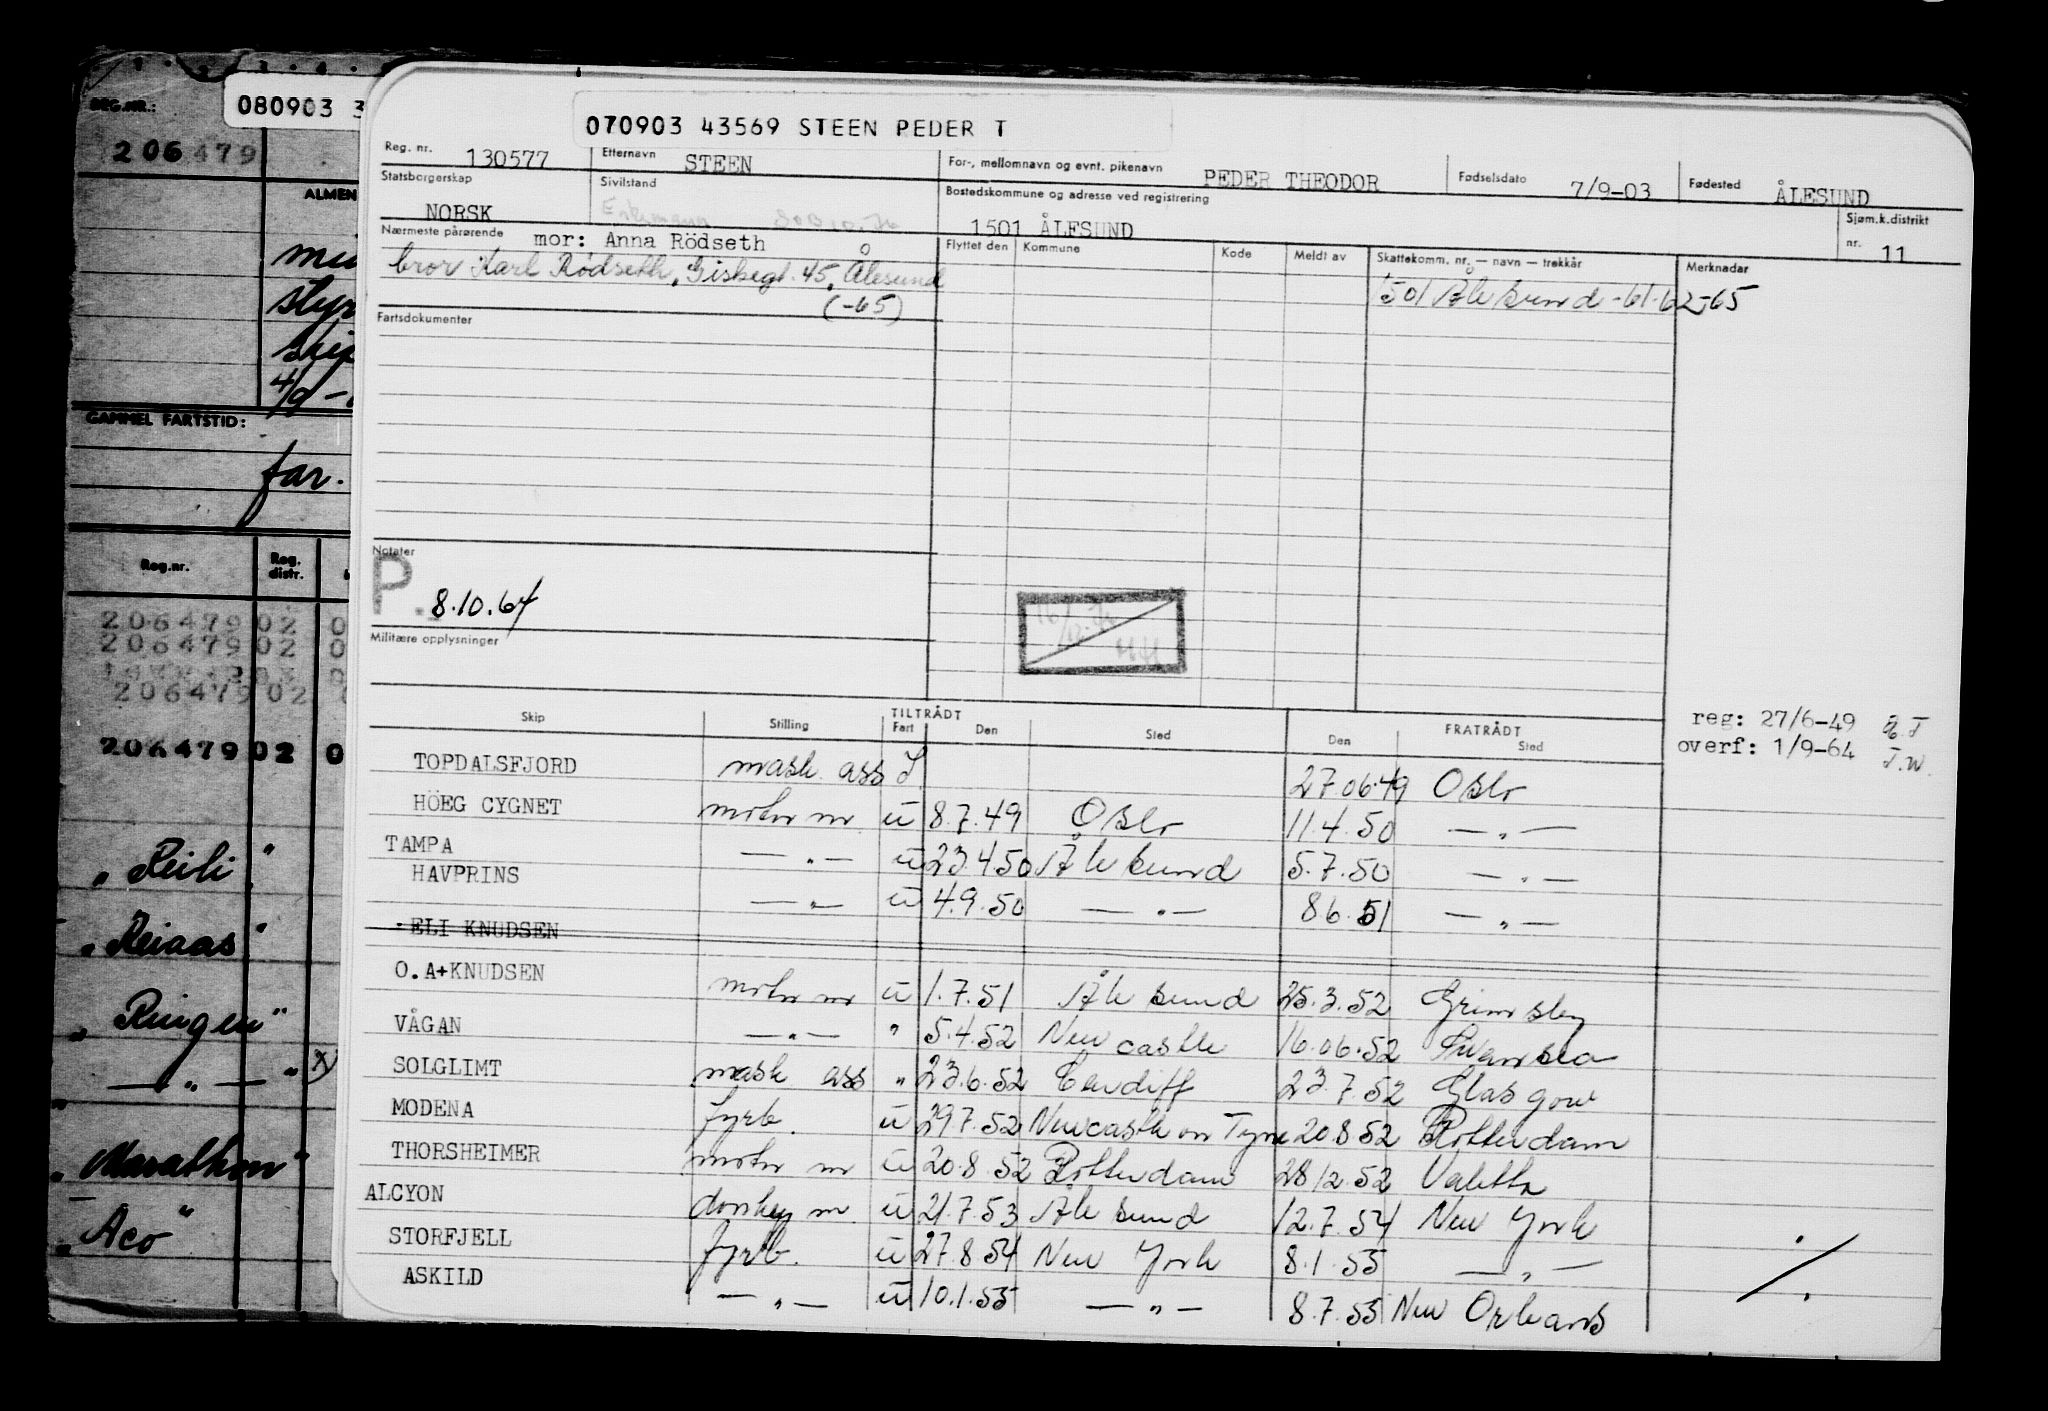 REG.NR.:
080903 3
206479
ALMEN
4/9 -
GAMMEL FARTSTID:
far.
Reg.nr.
Reg. distr.
206479 02 0
206479 02 0
206479 02
206479 02 0
„Reili"
„Reiaas"
„Ringen"
— „ — " x)
„Marathon"
„Aco"
070903 43569 STEEN PEDER T
Reg. nr. 130577 Etternavn STEEN For-, mellomnavn og evnt. pikenavn PEDER THEODOR Fødselsdato 7/9-03 Fødested ÅLESUND
Statsborgerskap NORSK Sivilstand Bostedskommune og adresse ved registrering 1501 ÅLESUND Sjøm.k.distrikt nr. 11
Nærmeste pårørende mor: Anna Rödseth Flyttet den Kommune Kode Meldt av Skattekomm. nr. — navn — trekkår Merknader
bror Karl Rödseth, Gisbegt. 45, Ålesund 1501 Ålesund -61-62-65
(-65)
Fartsdokumenter
Notater
P. 8.10.64
Militære opplysninger
reg: 27/6-49
overf: 1/9-64 T.W.
TILTRÅDT FRATRÅDT
Skip Stilling Fart Den Sted Den Sted
TOPDALSFJORD mask ass 27.06.49 Oslo
HÖEG CYGNET motor m u 8.7.49 Oslo 11.4.50 — „ —
TAMPA — „ — u 23.4.50 Ålesund 5.7.50 — „ —
HAVPRINS — „ — u 4.9.50 — „ — 8.6.51 — „ —
ELI KNUDSEN
O.A+KNUDSEN motor m u 1.7.51 Ålesund 25.3.52 Grimsby
VÅGAN — „ — " 5.4.52 Newcastle 16.06.52 Swansea
SOLGLIMT mask ass „ 23.6.52 Cardiff 23.7.52 Glasgow
MODENA fyrb. u 29.7.52 Newcastle on Tyne 20.8.52 Rotterdam
THORSHEIMER motor m u 20.8.52 Rotterdam 28.12.52 Valetta
ALCYON donkey m u 21.7.53 Ålesund 12.7.54 New York
STORFJELL fyrb. u 27.8.54 New York 8.1.55 — „ —
ASKILD — „ — u 10.1.55 — „ — 8.7.55 New Orleans